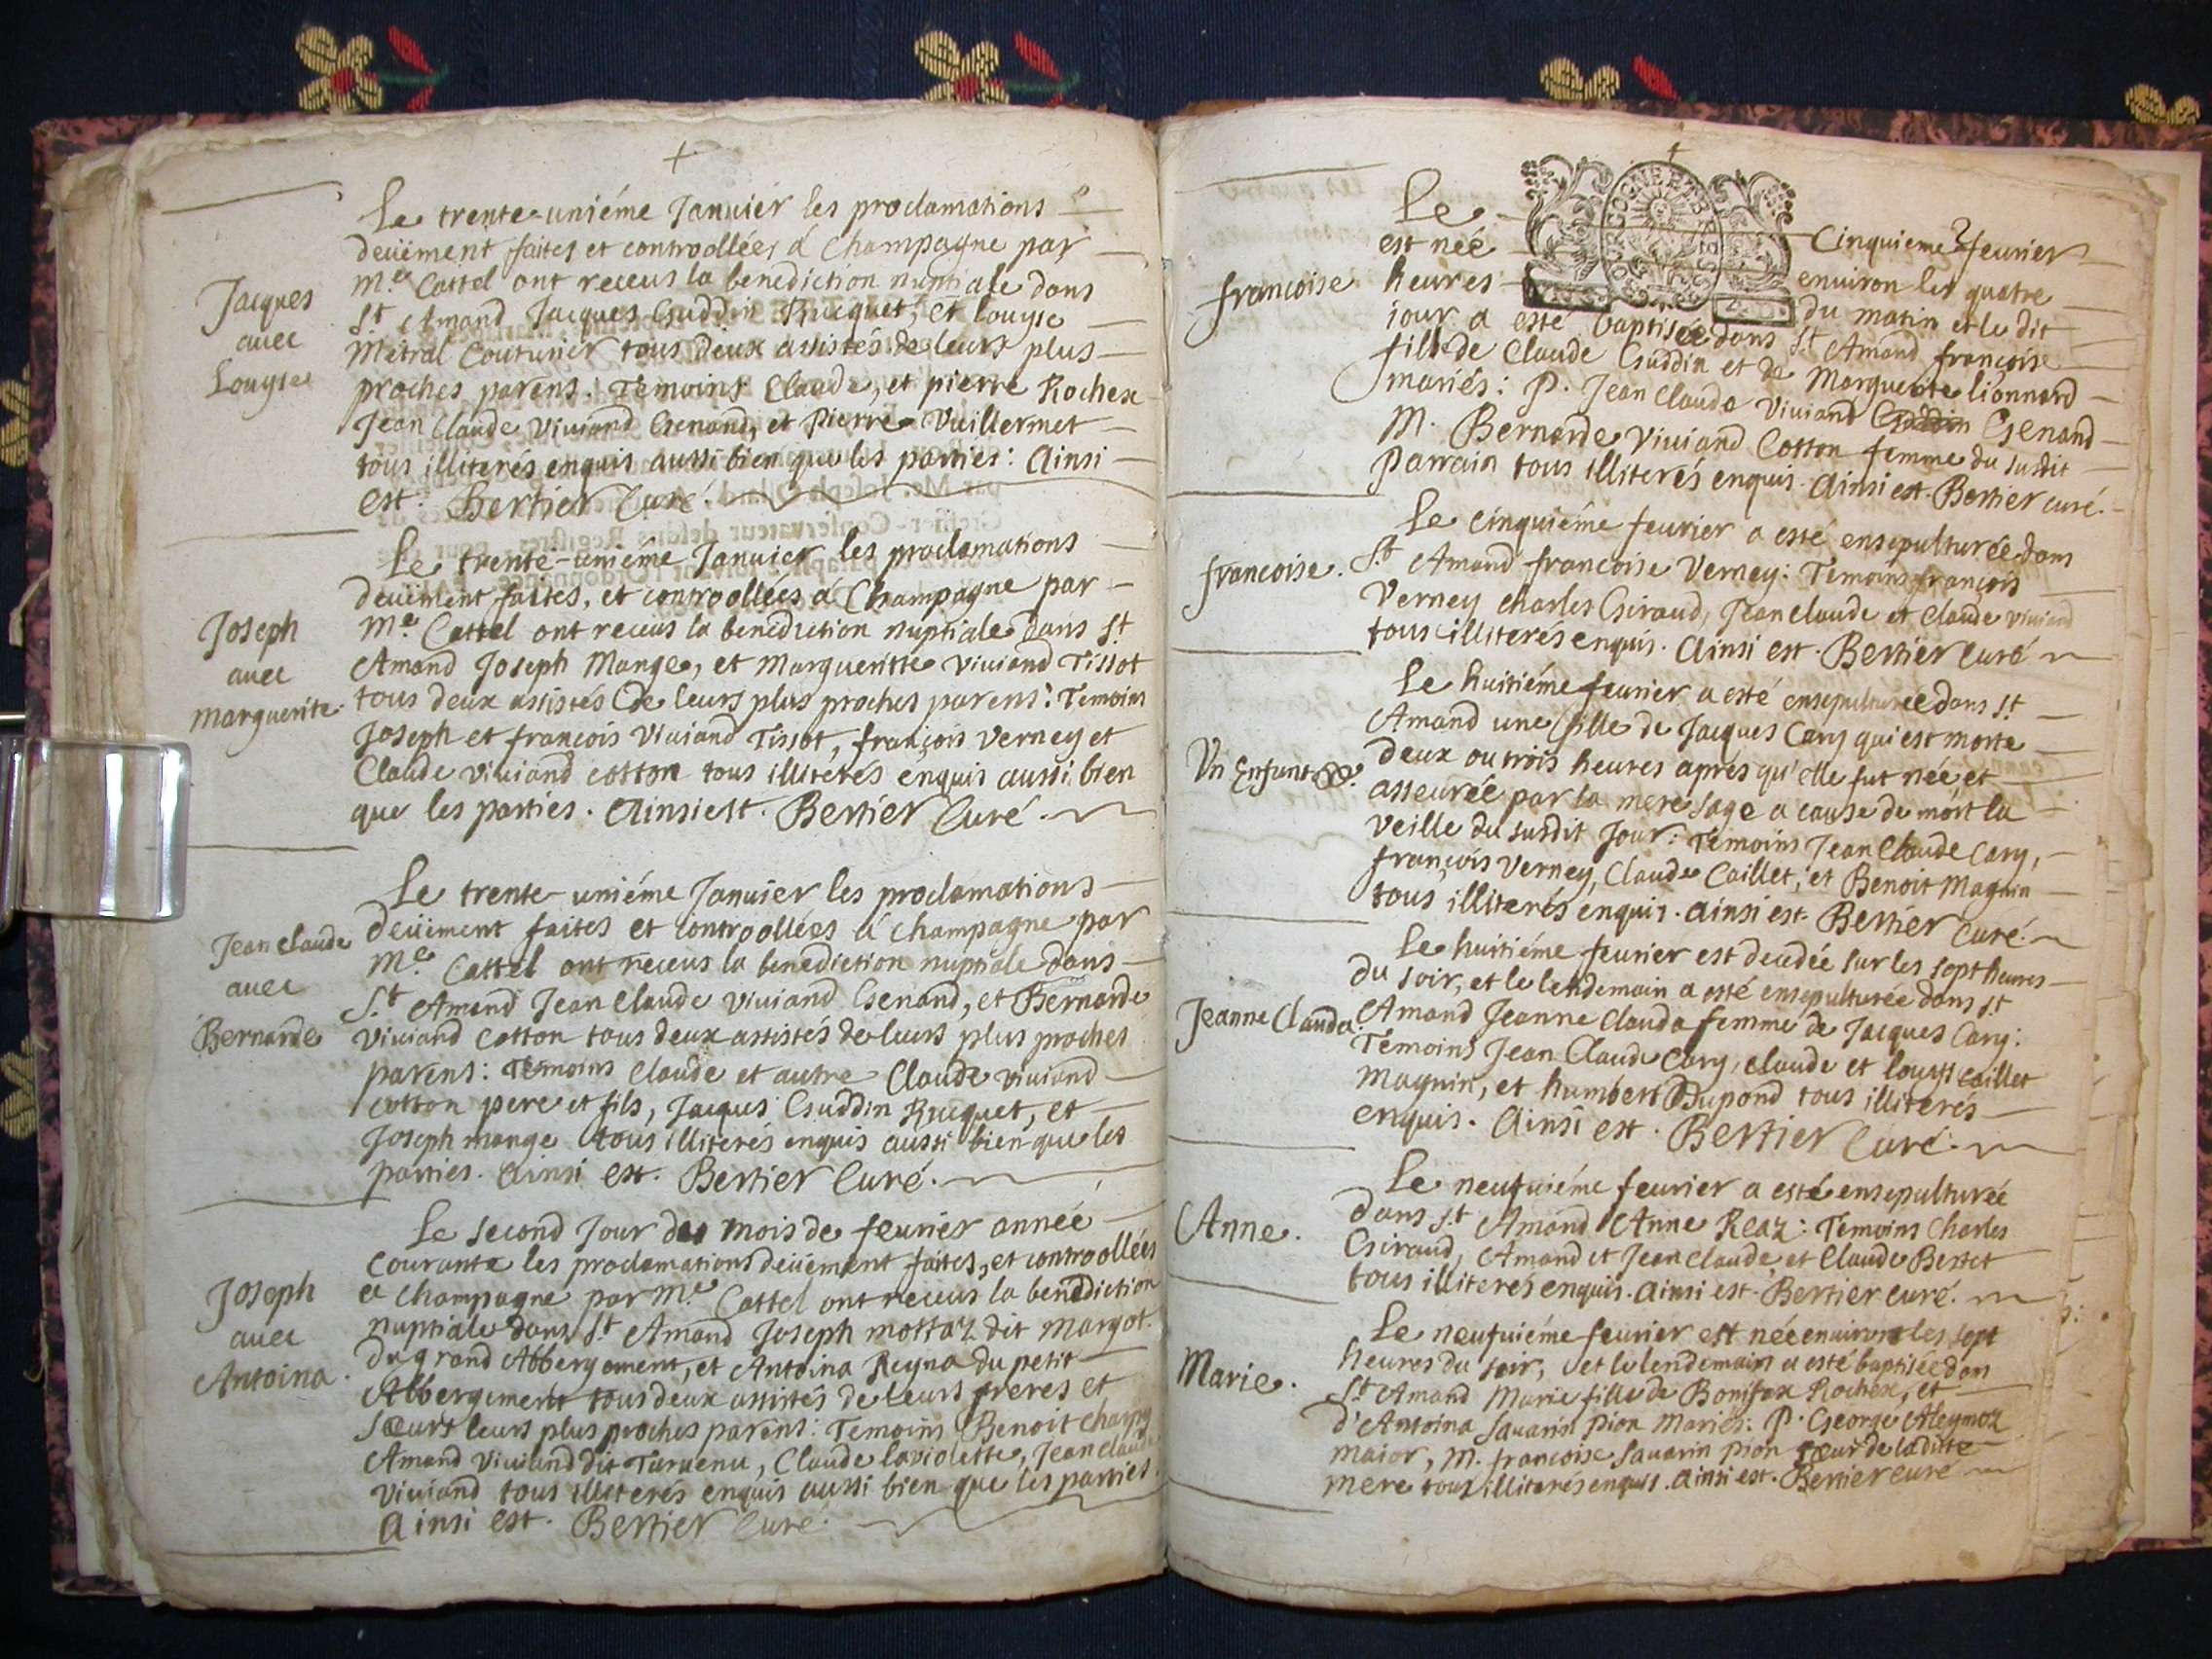 Le trente-uniéme Januier les proclamations
deüement faites et controollées á Champagne par
Jacques
auec
Louyse
Me. Cattel ont receus la benediction nuptiale dans
St. Amand Jacques Guddin Rucquet, et Louyse
Metral Couturier tous deux assistés de leurs plus
proches parens. Temoins Claude, et pierre Rochex
Jean Claude Viuiand Genand, et Pierre Vuillermet
tous illiterés enquis aussi bien que les parties: Ainsi
est. Bertier Curé.
Le trente-uniéme Januier les proclamations
deüement faites, et controollées á Champagne par
Joseph
auec
Marguerite
Me. Cattel ont receus la benediction nuptiale Dans St
Amand Joseph Mange, et Margueritte Viuiand Tissot
tous deux assistés de leurs plus proches parens: Temoins
Joseph et françois Viuiand Tissot, françois Verney et
Claude Viuiand cotton tous illiterés enquis aussi bien
que les parties. Ainsi est. Bertier Curé.
Le trente-uniéme Januier les proclamations
Jean Claude
auec
Bernarde
deüement faites et controollées á Champagne par
Me. Cattel ont receus la benediction nuptiale dans
St. Amand Jean Claude Viuiand Genand, et Bernarde
Viuiand Cotton tous deux assistés de leurs plus proches
parens: Temoins Claude et autre Claude Viuiand
cotton pere et fils, Jacques Guddin Rucquet, et
Joseph mange tous illiterés enquis aussi bien que les
parties. Ainsi est. Bertier Curé.
Le second Jour du mois de feurier année
Courante les proclamations deüement faites, et controollées
Joseph
auec
Antoina.
a Champagne par Me. Cattel ont receus la benediction
nuptiale dans St Amand Joseph mottaz dit Margot.
du grand Abbergement, et Antoina Reyna du petit
Abbergement tous deux assistés de leurs freres et
soeurs leurs plus proches parens: Temoins Benoit
Amand Viuiand dit Taruenu, Claude lauiolette, Jean claude
Viuiand tous illiterés enquis aussi bien que les parties.
Ainsi est. Bertier Curé.
Le Cinquieme feurier
est neé enuiron les quatre
francoise
heures du matin et le dit
jour a esté baptisée dans St Amand françoise
fille de Claude Guddin et de Marguerite lionnard
mariés: P. Jean Claude Viuiand Genand
M. Bernarde Viuiand Cotton femme du susdit
Parrain tous illiterés enquis. Ainsi est. Bertier curé.
Le cinquiéme feurier a esté ensepulturée dans
francoise.
St Amand francoise Verney: Temoins françois
Verney charles Giraud, Jean claude et Claude viuiand
tous illiterés enquis. Ainsi est. Bertier Curé
Le huitiéme feurier a esté ensepulturée dans St
Vn Enfant
Amand une fille de Jacques Cary qui est morte
deux ou trois heures apres qu'elle fut née et
asseurée par la mere sage a cause de mort la
veille du susdit Jour: Temoins Jean Claude Cary,
françois Verney, Claude Caillet, et Benoit Magnin
tous illiterés enquis. ainsi est. Bertier Curé.
Le huitiéme feurier est decedée sur les sept heures
du soir, et le lendemain a esté ensepulturée dans St
Jeanne Clauda.
Amand Jeanne Clauda femme de Jacques Cary:
Temoins Jean Claude Cary, claude et caillet
Magnin, et humbert Dupond tous illiterés
enquis. Ainsi est. Bertier Curé.
Le neufuiéme feurier a esté ensepulturée
Anne.
dans St Amand Anne Reaz: Temoins Charles
Giraud, Amand et Jean Claude, et Claude Bertet
tous illiterés enquis. Ainsi est. Bertier curé.
Le neufuiéme feurier est née enuiron les sept
Marie.
heures du soir, et le lendemain a esté baptisée dans
St Amand Marie fille de Bonifax Rochex, et
d'Antoina Sauarin pion Mariés: P. George Aleymoz
maior, M. francoise Sauarin pion soeur de laditte
mere tous illiterés enquis. Ainsi est. Bertier curé